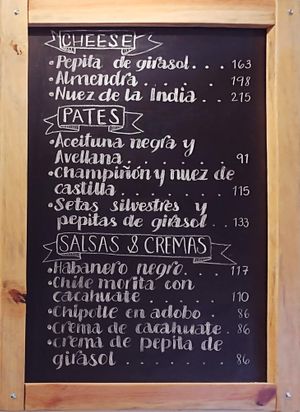 CHEESE
• Pepita de girasol . . . 163
• Almendra . . . . . . 198
• Nuez de la India . . 215
PATES
• Aceituna negra y
Avellana . . . . . . . 91
• Champiñón y nuez de
castilla . . . . . . . 115
• Setas silvestres y
pepitas de girasol . . 133
SALSAS & CREMAS
• Habanero negro . . . 117
• Chile morita con
cacahuate . . . . . . 110
• Chipotle en adobo . 86
• Crema de cacahuate . 86
• crema de pepita de
girasol . . . . . . . 86